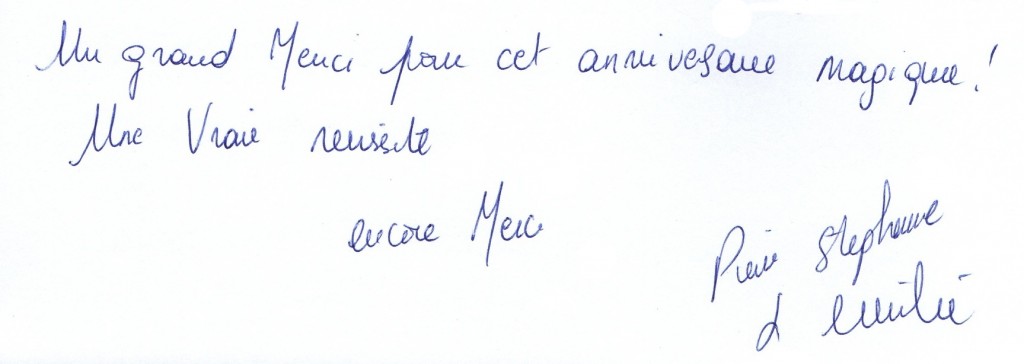 Un grand Merci pour cet anniversaire magique !
Une Vraie reussite
encore Merci
Pierre Stephanie
& Emilie